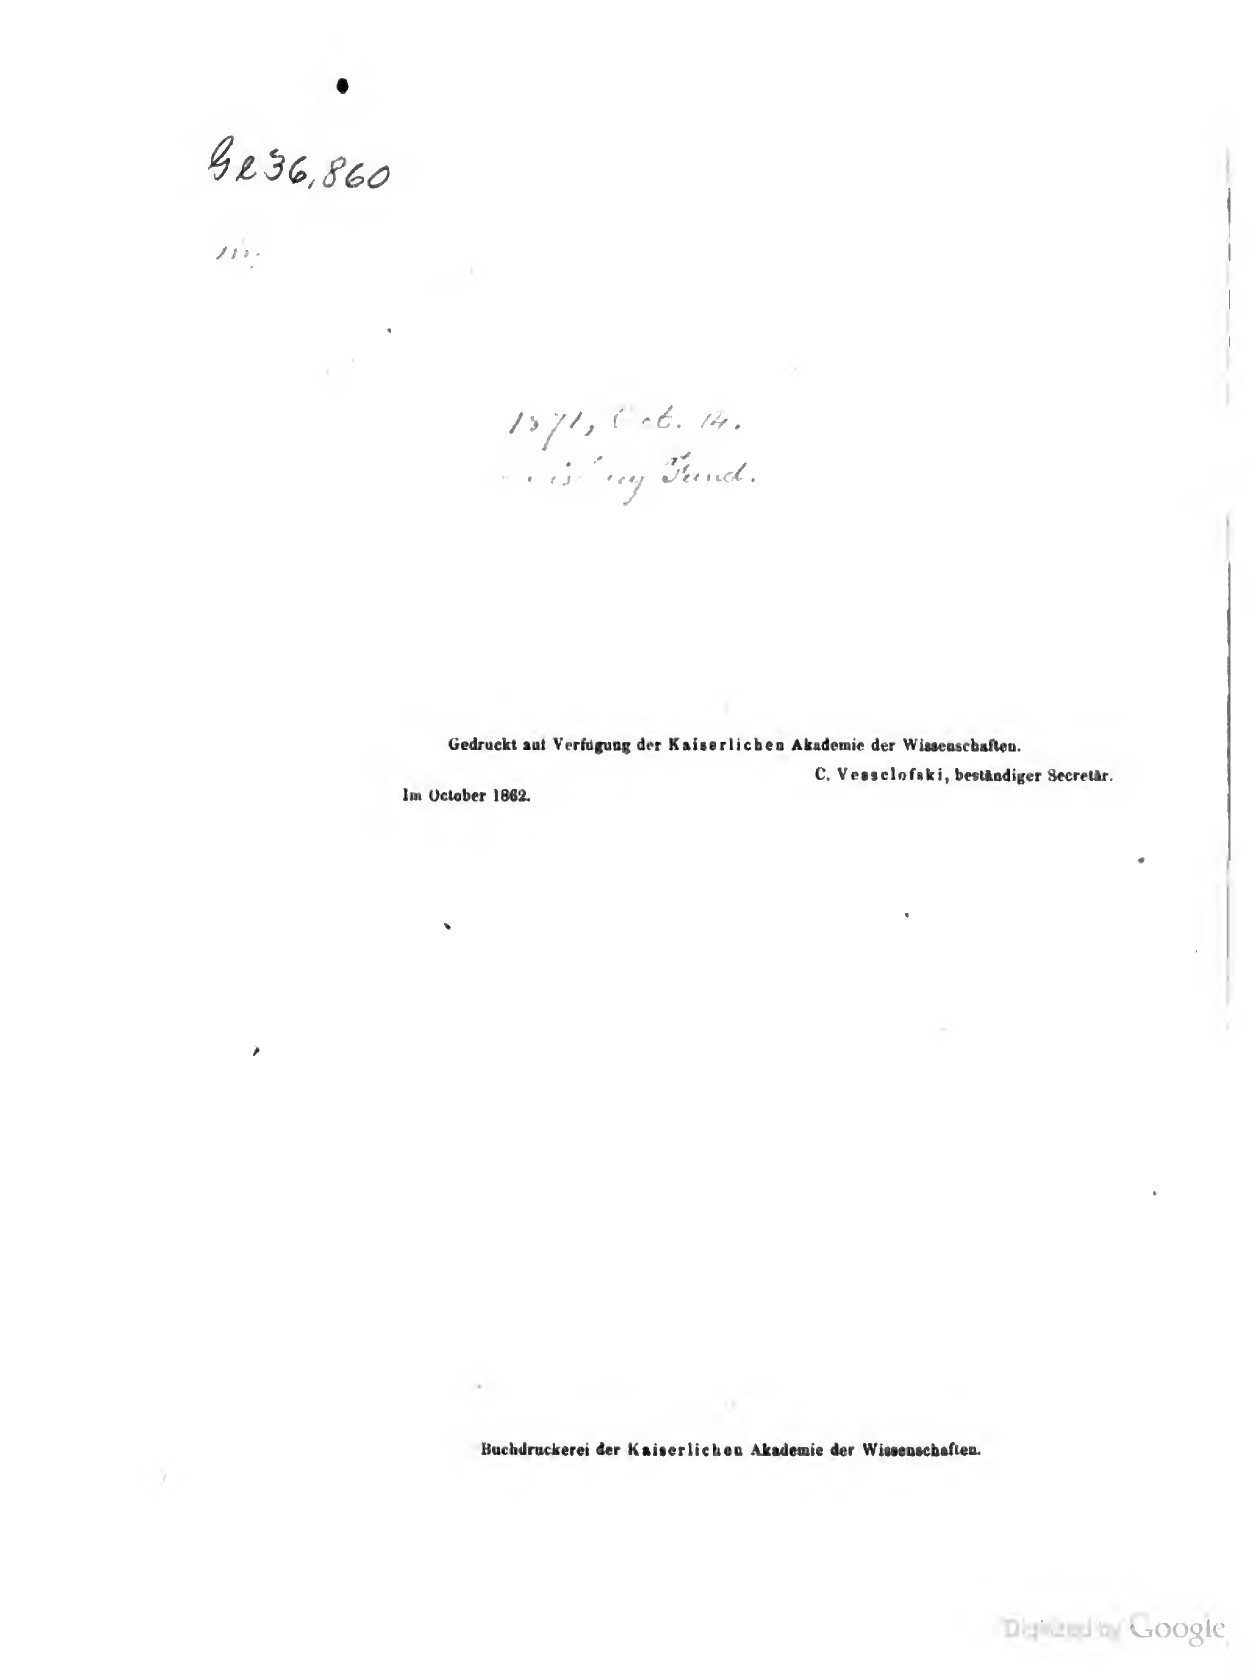 Gr 36,860
1871, Oct. 14.
Fund.
Gedruckt auf Verfügung der Kaiserlichen Akademie der Wissenschaften.
C. Vesselofski, beständiger Secretär.
Im October 1862.
Buchdruckerei der Kaiserlichen Akademie der Wissenschaften.
Digitized by Google